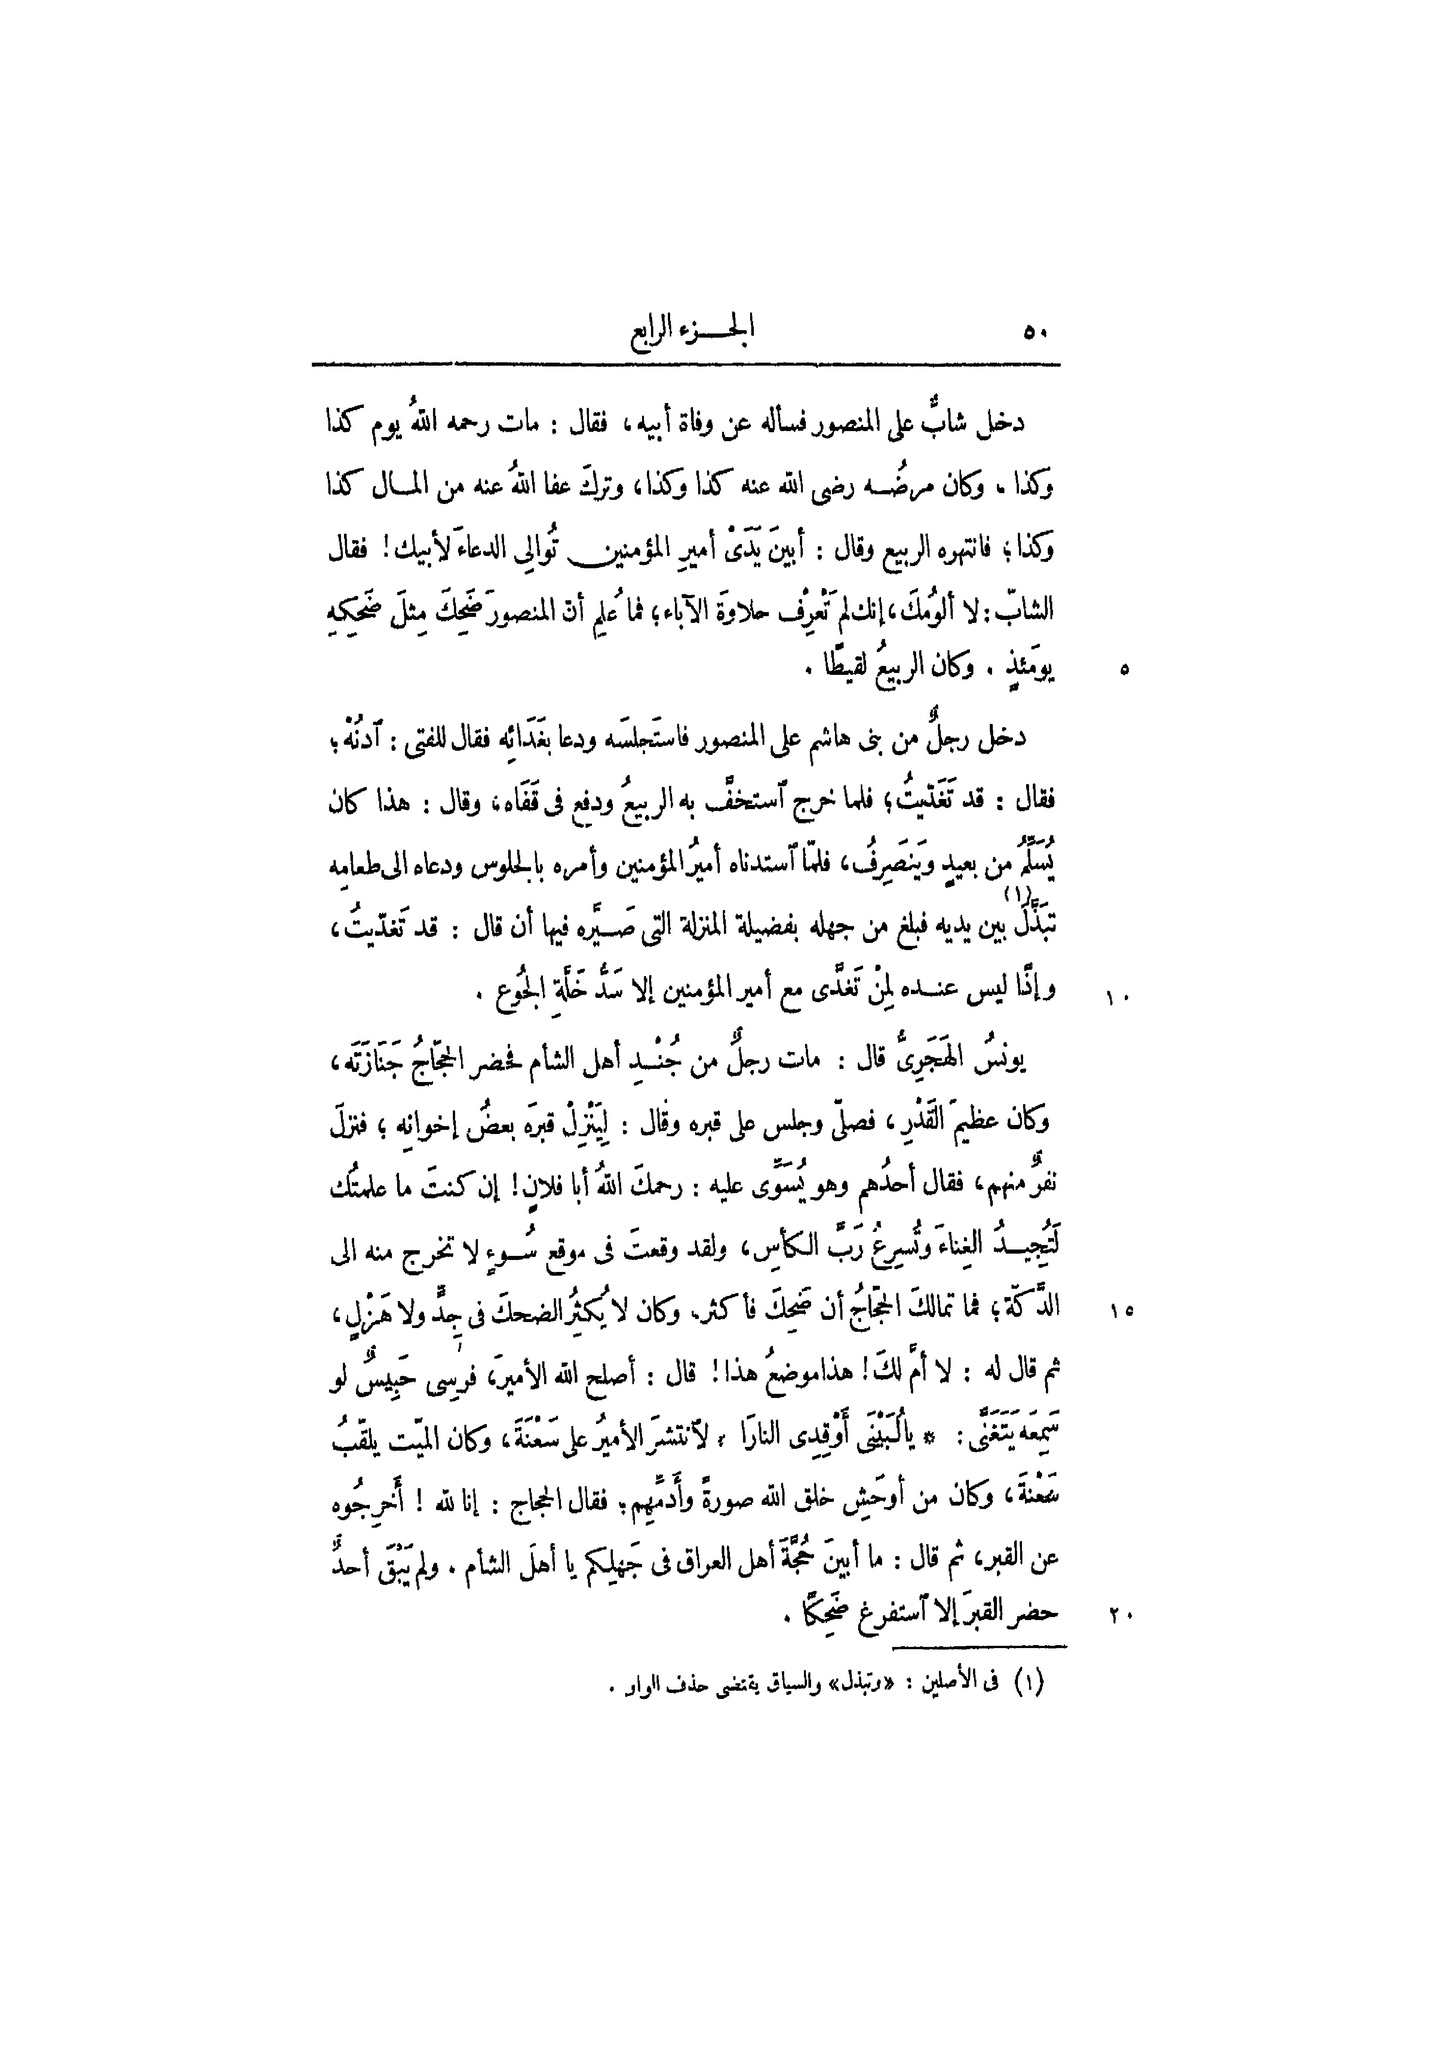 ٥٠ الجزء الرابع
دخل شابٌّ على المنصور فسأله عن وفاة أبيه، فقال : مات رحمه اللهُ يوم كذا
وكذا، وكان مرضُه رضى الله عنه كذا وكذا، وتركَ عفا اللهُ عنه من المال كذا
وكذا؛ فانتهره الربيع وقال : أبينَ يَدَىْ أميرِ المؤمنين تُوالِى الدعاءَ لأبيك! فقال
الشابّ: لا ألومُكَ، إنك لم تَعْرِف حلاوةَ الآباء؛ فما عُلِم أنّ المنصورَ ضَحِكَ مِثلَ ضَحِكِهِ
٥ يومَئذٍ . وكان الربيعُ لقيطًا .
دخل رجلٌ من بنى هاشم على المنصور فاستَجلسَه ودعا بغَدَائِه فقال للفتى : ٱدنُهْ؛
فقال : قد تَغَدّيتُ؛ فلما خرج ٱستخفَّ به الربيعُ ودفع فى قَفَاه، وقال : هذا كان
يُسَلِّمُ من بعيدٍ ويَنصَرِفُ، فلمّا ٱستدناه أميرُ المؤمنين وأمره بالجلوس ودعاه الى طعامِه
تبَذَّلَ (١) بين يديه فبلغ من جهله بفضيلة المنزلة التى صَيَّره فيها أن قال : قد تَغدّيتُ،
١٠ وإنَّا ليس عنده لِمَنْ تَغدَّى مع أمير المؤمنين إلا سَدُّ خَلَّةِ الجُوع .
يونسُ الهَجَرِىُّ قال : مات رجلٌ من جُنْدِ أهل الشأم فحضر الحجّاجُ جَنَازَتَه،
وكان عظيمَ القَدْرِ، فصلّى وجلس على قبره وقال : لِيَنْزِلْ قبرَه بعضُ إخوانِه ؛ فنزلَ
نفرٌ منهم، فقال أحدُهم وهو يُسَوِّى عليه : رحمكَ اللهُ أبا فلانٍ! إن كنتَ ما علمتُك
لَتُجِيدُ الغِناءَ وتُسرِعُ رَبَّ الكأسِ، ولقد وقعتَ فى موقع سُوءٍ لا تخرج منه الى
١٥ الدَّكّة؛ فما تمالكَ الحجّاجُ أن ضَحِكَ فأكثر. وكان لا يُكثِرُ الضحكَ فى جِدٍّ ولا هَزْلٍ،
ثم قال له : لا أمَّ لكَ! هذا موضعُ هذا! قال : أصلح الله الأميرَ، فرسِى حَبِيسٌ لو
سَمِعَه يَتَغَنَّى: * يا لُبَيْنَى أَوْقِدِى النارَا * لَٱنتشرَ الأميرُ على سَعْنَةَ، وكان الميّت يلقّبُ
سَعْنةَ، وكان من أوحَشِ خلق الله صورةً وأَدَمِّهِم؛ فقال الحجاج : إنا لله ! أَخرِجُوه
عن القبر، ثم قال : ما أبينَ حُجَّةَ أهل العراق فى جَهلِكم يا أهلَ الشأم . ولم يَبْقَ أحدٌ
٢٠ حضر القبرَ إلا ٱستفرغ ضَحِكًا .
(١) فى الأصلين : «وتبذل» والسياق يقتضى حذف الواو .